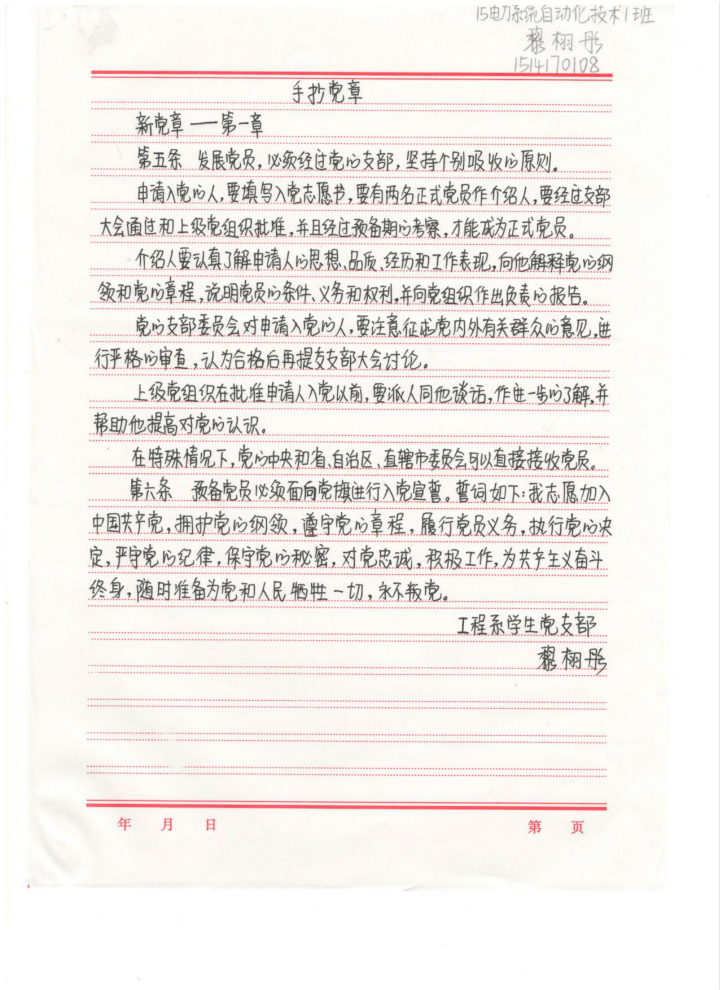 15电力系统自动化技术1班
黎栩彤
1514170108
手抄党章
新党章——第一章
第五条 发展党员，必须经过党的支部，坚持个别吸收的原则。
申请入党的人，要填写入党志愿书，要有两名正式党员作介绍人，要经过支部
大会通过和上级党组织批准，并且经过预备期的考察，才能成为正式党员。
介绍人要认真了解申请人的思想、品质、经历和工作表现，向他解释党的纲
领和党的章程，说明党员的条件、义务和权利，并向党组织作出负责的报告。
党的支部委员会对申请入党的人，要注意征求党内外有关群众的意见，进
行严格的审查，认为合格后再提交支部大会讨论。
上级党组织在批准申请人入党以前，要派人同他谈话，作进一步的了解，并
帮助他提高对党的认识。
在特殊情况下，党的中央和省、自治区、直辖市委员会可以直接接收党员。
第六条 预备党员必须面向党旗进行入党宣誓。誓词如下：我志愿加入
中国共产党，拥护党的纲领，遵守党的章程，履行党员义务，执行党的决
定，严守党的纪律，保守党的秘密，对党忠诚，积极工作，为共产主义奋斗
终身，随时准备为党和人民牺牲一切，永不叛党。
工程系学生党支部
黎栩彤
年 月 日 第 页